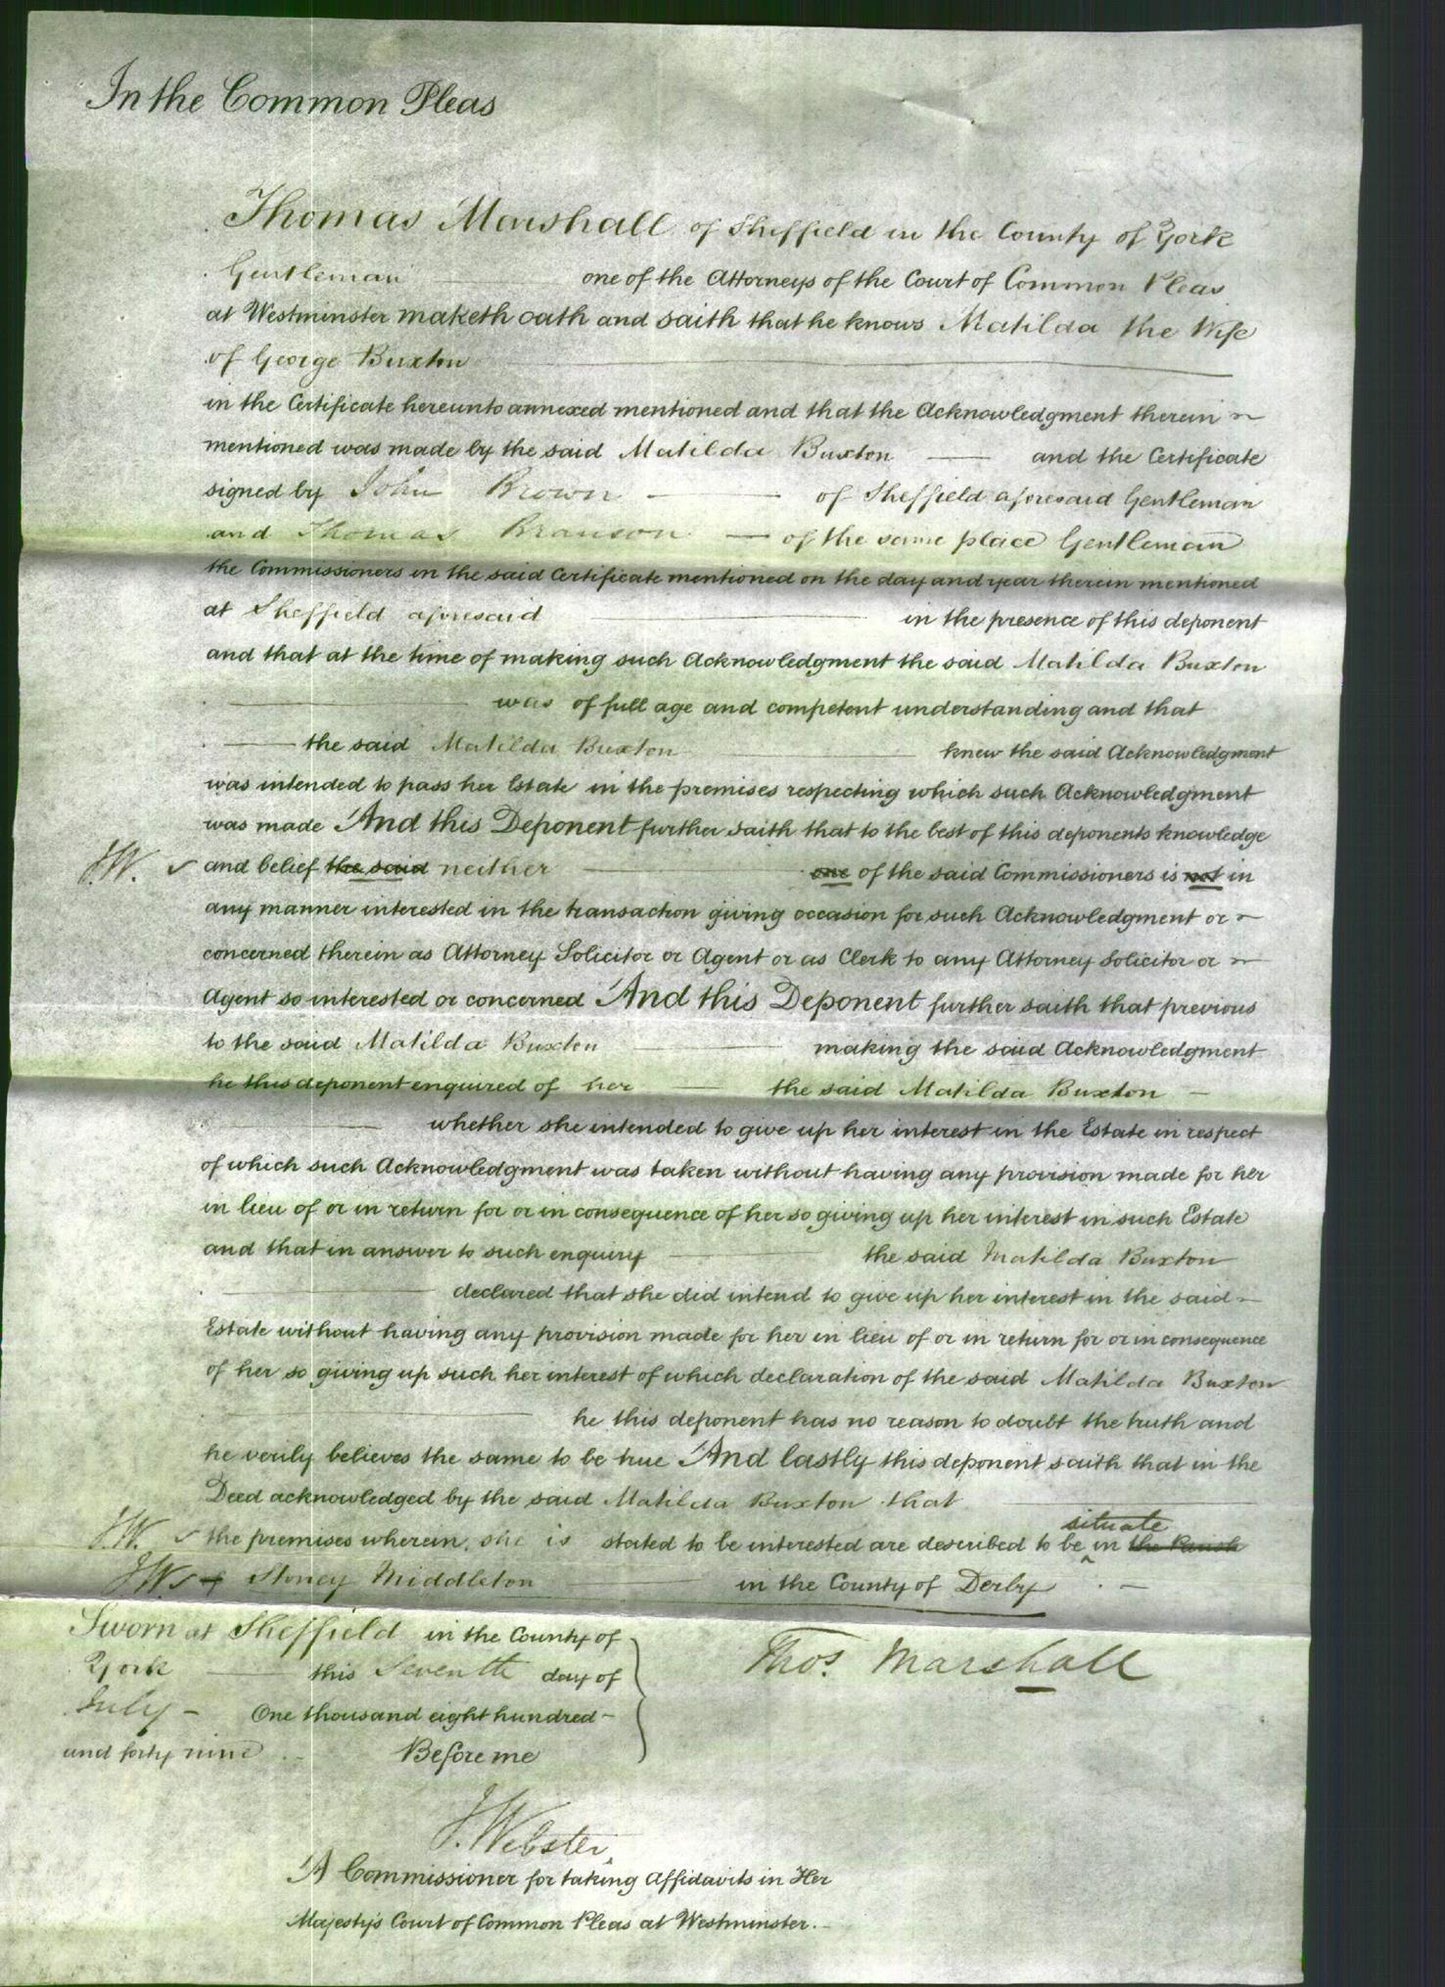 In the Common Pleas
Thomas Marshall of Sheffield in the County of York
Gentleman one of the Attorneys of the Court of Common Pleas
at Westminster maketh oath and saith that he knows Matilda the Wife
of George Buxton
in the Certificate hereunto annexed mentioned and that the Acknowledgment therein
mentioned was made by the said Matilda Buxton — and the Certificate
signed by John Brown — of Sheffield aforesaid Gentleman
and Thomas Branson — of the same place Gentleman
the Commissioners in the said Certificate mentioned on the day and year therein mentioned
at Sheffield aforesaid — in the presence of this deponent
and that at the time of making such Acknowledgment the said Matilda Buxton
— was of full age and competent understanding and that
— the said Matilda Buxton — knew the said Acknowledgment
was intended to pass her Estate in the premises respecting which such Acknowledgment
was made And this Deponent further saith that to the best of this deponents knowledge
J.W. and belief the said neither — one of the said Commissioners is not in
any manner interested in the transaction giving occasion for such Acknowledgment or
concerned therein as Attorney Solicitor or Agent or as Clerk to any Attorney Solicitor or
Agent so interested or concerned And this Deponent further saith that previous
to the said Matilda Buxton — making the said Acknowledgment
he this deponent enquired of her — the said Matilda Buxton —
— whether she intended to give up her interest in the Estate in respect
of which such Acknowledgment was taken without having any provision made for her
in lieu of or in return for or in consequence of her so giving up her interest in such Estate
and that in answer to such enquiry — the said Matilda Buxton
— declared that she did intend to give up her interest in the said
Estate without having any provision made for her in lieu of or in return for or in consequence
of her so giving up such her interest of which declaration of the said Matilda Buxton
— he this deponent has no reason to doubt the truth and
he verily believes the same to be true And lastly this deponent saith that in the
Deed acknowledged by the said Matilda Buxton that
situate
J.W. the premises wherein she is stated to be interested are described to be ^ in the Parish
J.W. Stoney Middleton — in the County of Derby
Sworn at Sheffield in the County of
York — this Seventh day of
July — One thousand eight hundred
and forty nine Before me
Thos. Marshall
J. Webster
A Commissioner for taking Affidavits in Her
Majesty's Court of Common Pleas at Westminster.